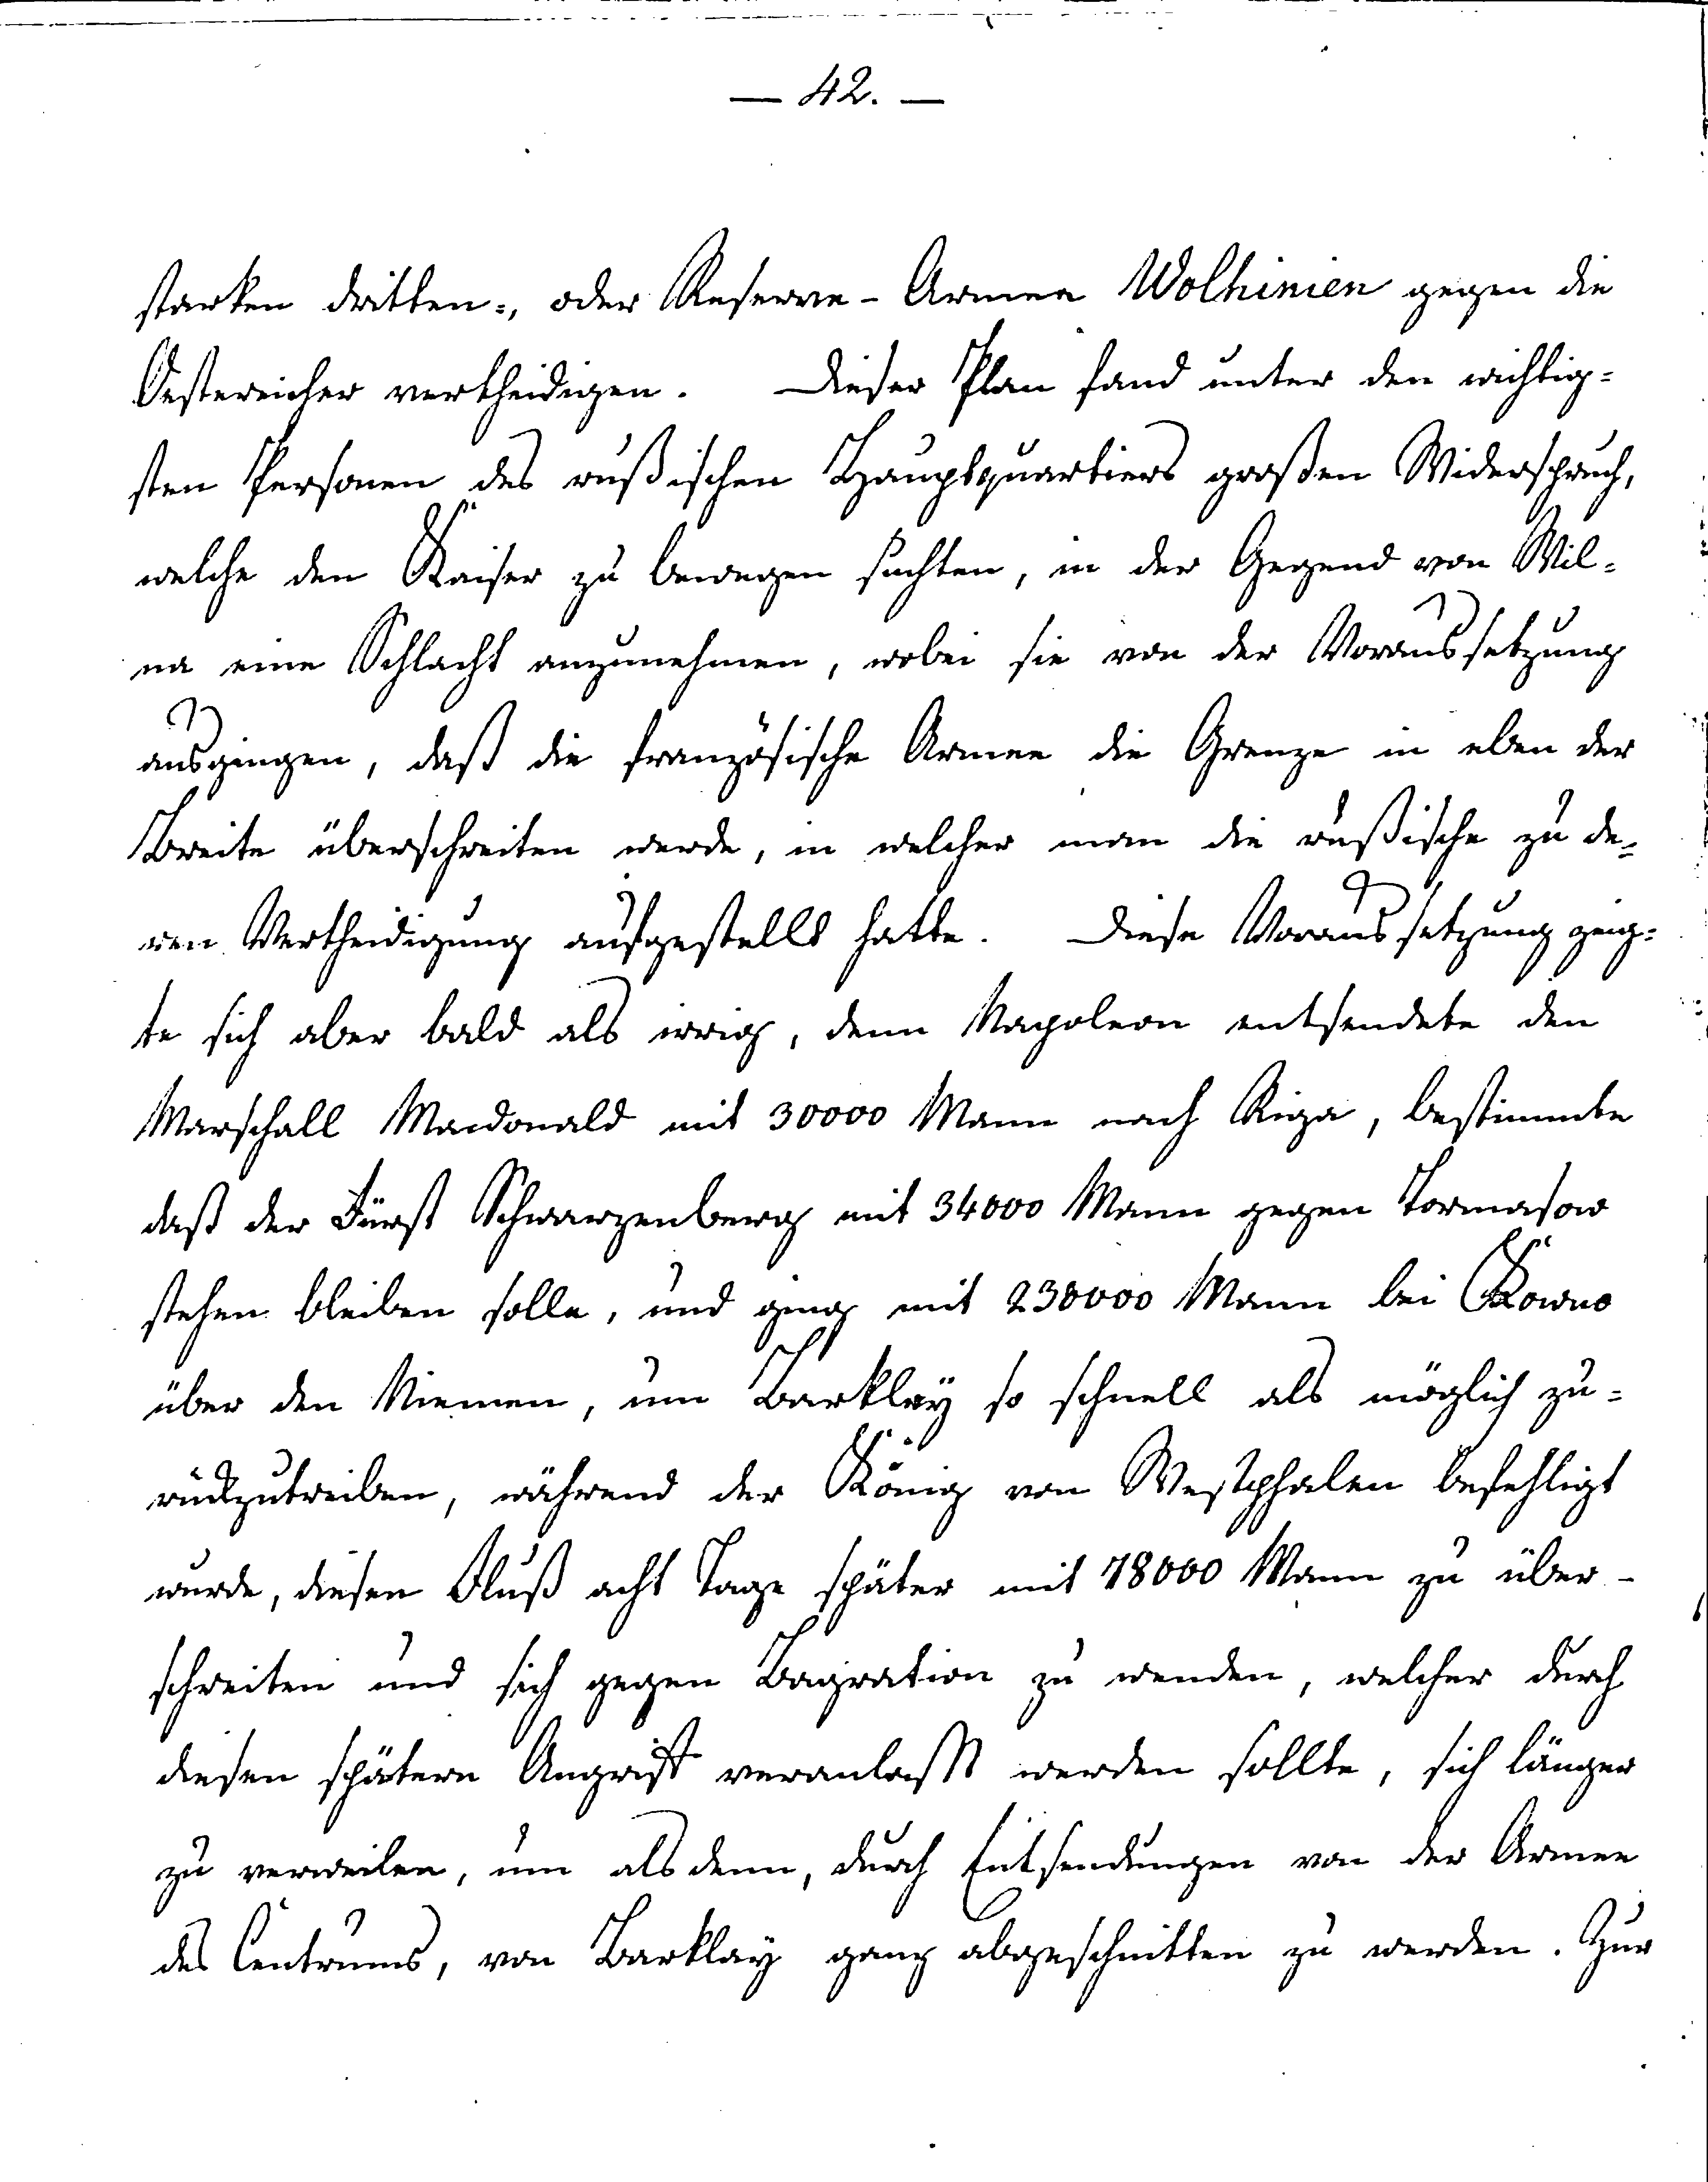 — 42. —
starken dritten-, oder Reserve-Armee Wolhinien gegen die
Oestereicher vertheidigen. Dieser Plan fand unter den wichtig-
sten Personen des rußischen Hauptquartiers großen Widerspruch,
welche den Kaiser zu bewegen suchten, in der Gegend von Wil-
na eine Schlacht anzunehmen, wobei sie von der Voraussetzung
ausgingen, daß die französische Armee die Grenze in eben der
Breite überschreiten werde, in welcher man die rußische zu de-
ren Vertheidigung aufgestellt hatte. Diese Voraussetzung zeig-
te sich aber bald als irrig, denn Napoleon entsendete den
Marschall Macdonald mit 30000 Mann nach Riga, bestimmte
daß der Fürst Schwarzenberg mit 34000 Mann gegen Tormasow
stehen bleiben solle, und ging mit 230000 Mann bei Kowno
über den Niemen, um Barklay so schnell als möglich zu-
rückzutreiben, während der König von Westphalen befehligt
wurde, diesen Fluß acht Tage später mit 78000 Mann zu über-
schreiten und sich gegen Bagration zu wenden, welcher durch
diesen spätern Angriff veranlasst werden sollte, sich länger
zu verweilen, um alsdenn, durch Entsendungen von der Armee
des Centrums, von Barklay ganz abgeschnitten zu werden. Zur